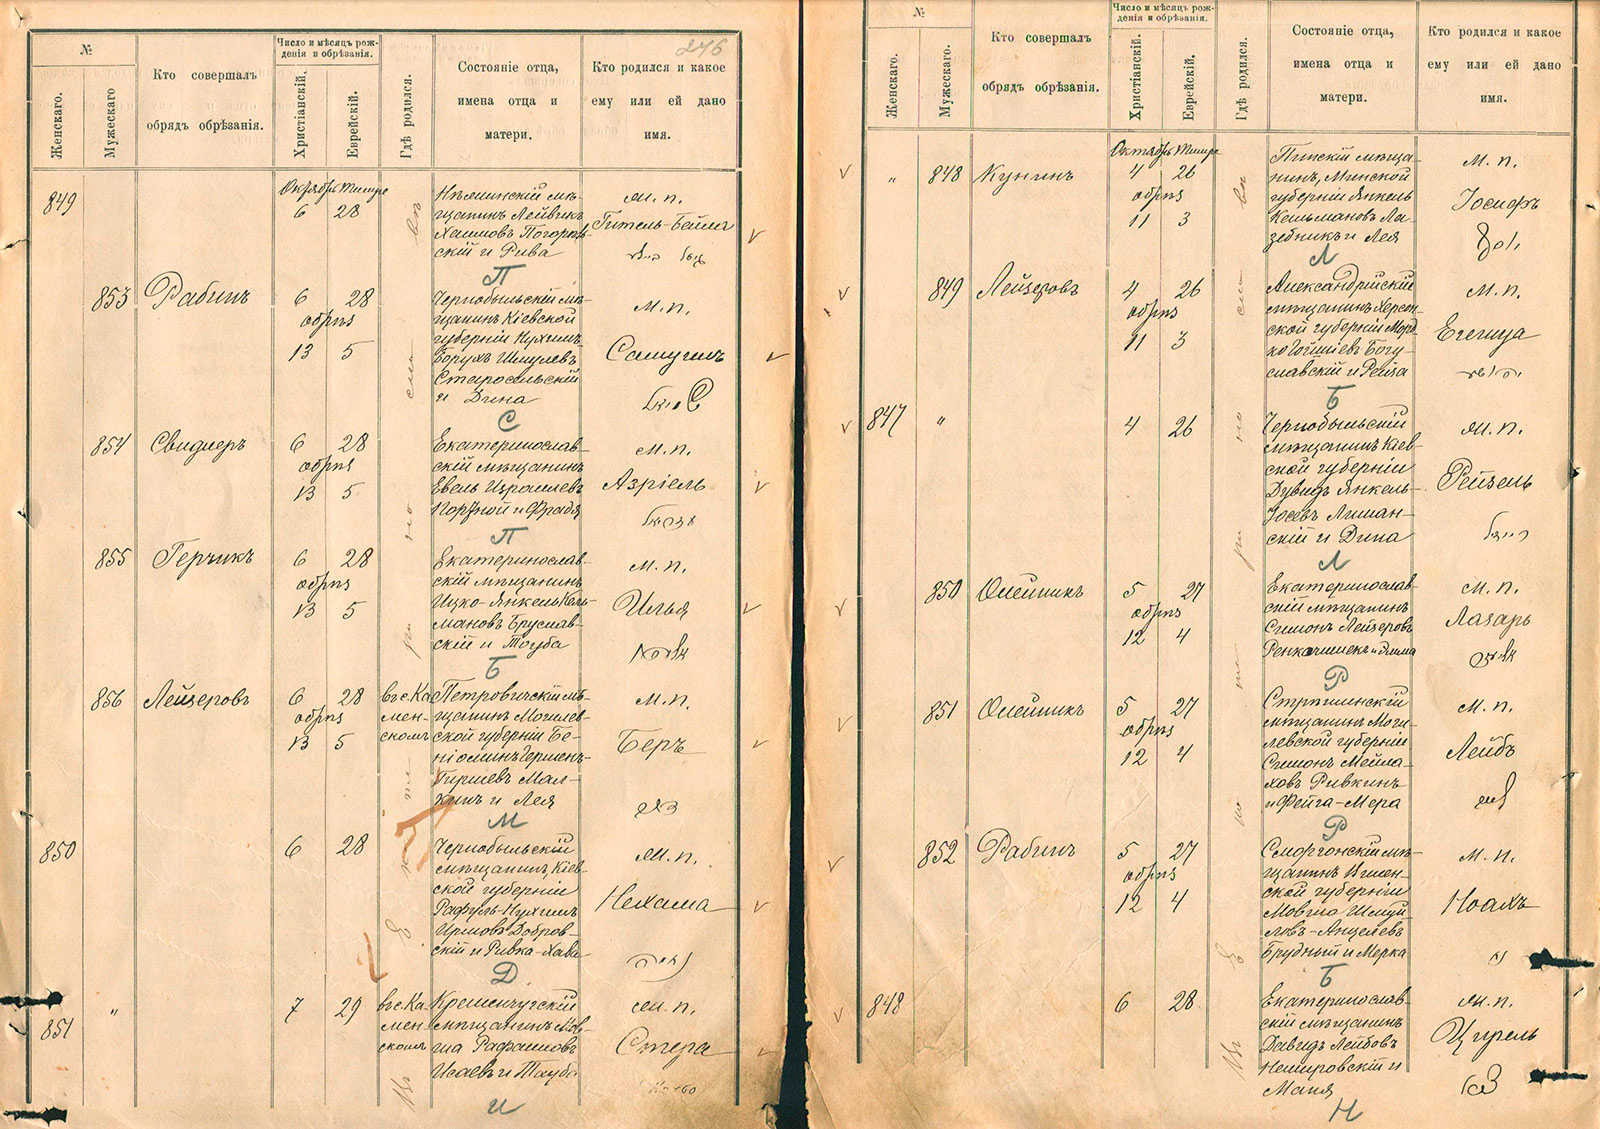 276
№
Женскаго.
Мужескаго
Кто совершалъ
обрядъ обрѣзанія.
Число и мѣсяцъ рож-
денія и обрѣзанія.
Христіанскій.
Еврейскій.
Гдѣ родился.
Состояніе отца,
имена отца и
матери.
Кто родился и какое
ему или ей дано
имя.
849
6 28
щанинъ Лейвикъ
скій и Рива
м. п.
Гитель-Бейла
П
853 Рабинъ
6 28
обрѣз
13 5
Чернобыльскій мѣ-
щанинъ Кіевской
губерніи Нухимъ-
Борухъ Шмулевъ
Старосельскій
и Дина
м. п.
Самуилъ
С
854 Свидлеръ
6 28
обрѣз
13 5
Екатеринослав-
скій мѣщанинъ
Евель Израилевъ
м. п.
Азріель
П
855 Герчикъ
6 28
обрѣз
13 5
Екатеринослав-
скій мѣщанинъ
Ицко-Янкель Кель-
мановъ Бруслав-
скій и Тауба
м. п.
Илья
Б
856 Лейзеровъ
6 28
обрѣз
13 5
въ с. Ка
мен-
скомъ
Петровичскій мѣ-
щанинъ Могилев-
ской губерніи Бе-
Гиршевъ Мал-
кинъ и Лея
м. п.
Беръ
М
850
6 28
Чернобыльскій
мѣщанинъ Кіев-
ской губерніи
Рафуль-Нухимъ
Добров-
скій и Ривка-Хава
м. п.
Нехама
Д
851 "
7 29
въ с. Ка
мен-
скомъ
Кременчугскій
мѣщанинъ Мов-
ша Рафаиловъ
Исаевъ и Тауба
м. п.
Стера
И
№
Женскаго.
Мужескаго.
Кто совершалъ
обрядъ обрѣзанія.
Число и мѣсяцъ рож-
денія и обрѣзанія.
Христіанскій.
Еврейскій.
Гдѣ родился.
Состояніе отца,
имена отца и
матери.
Кто родился и какое
ему или ей дано
имя.
" 848 Кунинъ
Октябрь Тишре
4 26
обрѣз
11 3
Пинскій мѣща-
нинъ, Минской
губерніи Янкель
Кельмановъ Ла-
зебникъ и Лея
м. п.
Іосифъ
Л
849 Лейзеровъ
4 26
обрѣз
11 3
Александрійскій
мѣщанинъ Херсон-
ской губерніи Морд-
ко Богу-
славскій и Рейза
м. п.
Б
847 "
4 26
Чернобыльскій
мѣщанинъ Кіев-
ской губерніи
Дувидъ Янкель-
Іосевъ Лиман-
скій и Дина
м. п.
Рейзель
Л
850 Олейникъ
5 27
обрѣз
12 4
Екатеринослав-
скій мѣщанинъ
Симонъ Лейзеровъ
м. п.
Лазарь
Р
851 Олейникъ
5 27
обрѣз
12 4
мѣщанинъ Моги-
левской губерніи
Симонъ Мейла-
ховъ Ривкинъ
и Фейга-Мера
м. п.
Лейбъ
Р
852 Рабинъ
5 27
обрѣз
12 4
Сморгонскій мѣ-
щанинъ Вилен-
ской губерніи
Мовша Шмуй-
ловъ-Анцелевъ
Брудный и Мерка
м. п.
Ноахъ
Б
848
6 28
Екатеринослав-
скій мѣщанинъ
Давидъ Лейбовъ
Немировскій и
Маня
м. п.
Цирель
Н